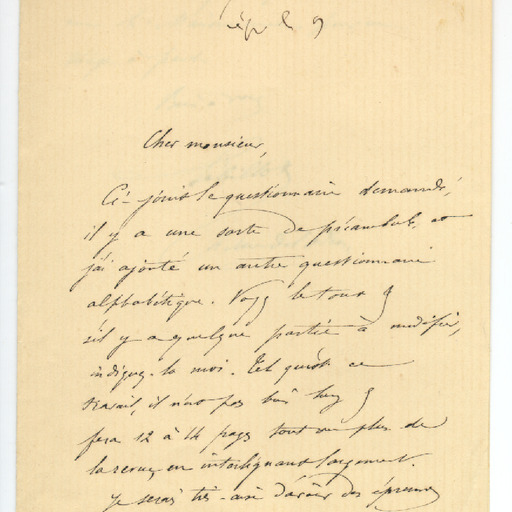 le 9
Cher monsieur,
Ci-joint le questionnaire demandé,
il y a une sorte de préambule, et
j'ai ajouté un autre questionnaire
alphabétique. Voyez le tout &
s'il y a quelque partie à modifier,
indiquez-la moi. Tel qu'est ce
travail, il n'est pas bien long &
fera 12 à 14 pages tout au plus de
la revue, en interlignant largement.
Je serai très-aise d'avoir des épreuves